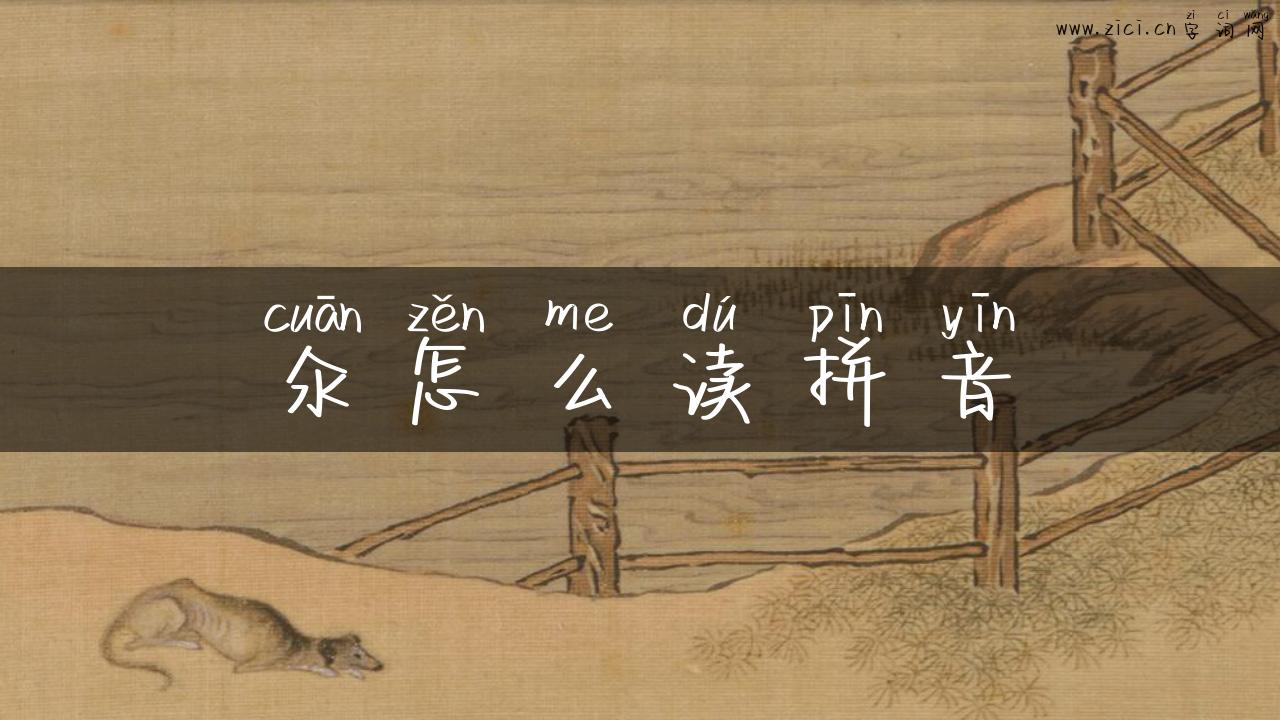 zi ci wang
www.zici.cn 字 词 网
cuān zěn me dú pīn yīn
氽 怎 么 读 拼 音